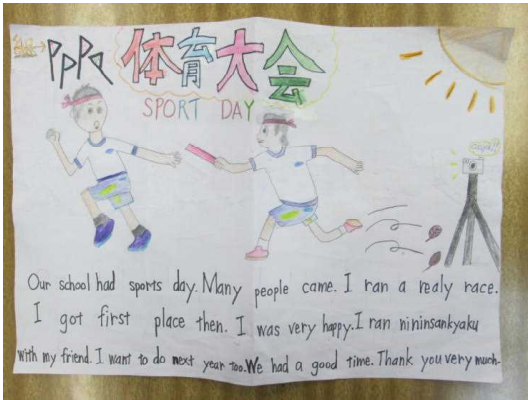 体育大会
SPORT DAY
Our school had sports day. Many people came. I ran a realy race.
I got first place then. I was very happy. I ran nininsankyaku
with my friend. I want to do next year too. We had a good time. Thank you very much.